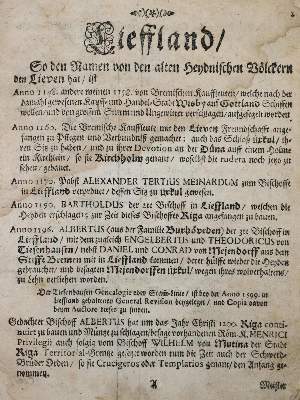 Lieffland/
So den Namen von den alten Heydnischen Völckern
den Lieven hat/ ist
Anno 1148. andere meinen 1158. von Bremischen Kauffleuten/ welche nach der
damahl gewesenen Kauff- und Handel-Stadt Wisby auff Gottland Schiffen
wollen/ und von grossem Sturm und Ungewitter verschlagen/ auffgesegelt worden
Anno 1160. Die Bremische Kauffleute mit den Lieven Freundschafft ange-
fangen zu Pflegen und Verbündnuß gemachet; auch das Schloß ixkul/ ih-
ren wahren nieder zu legen/ und zwey Meilen davon der Düna auff einem Holme
ein Kirchlein/ so sie Kirchholm genant/ woselbst die rudera noch jetzo zu
sehen/ gebauet.
Anno 1170. Pabst ALEXANDER TERTIUS MEINARDUM zum Bischoffe
in Lieffland verordnet/ dessen Sitz zu ixkul gewesen.
Anno 1190. BARTHOLDUS der 2te Bischoff in Lieffland/ welchen die
Heyden erschlagen; zur Zeit dieses Bischoffes Riga angefangen zu bauen.
Anno 1196. ALBERTUS (aus der Familie Buxhöveden) der 3te Bischoff in
Lieffland/ mit dem zugleich ENGELBERTUS und THEODORICUS von
Tiesenhausen/ nebst DANIEL und CONRAD von Mejendorff aus dem
Stiffte Bremen mit in Lieffland kommen/ derer hülffe wieder die Heyden
gebrauchet/ und besagten Mejendorffen ixkul/ wegen ihres wolverhaltens/
zu Lehn verliehen worden.
Der Tiesenhausen Genealogie oder Stam-linie/ ist bey der Anno 1599. in
Lieffland gehaltenen General Revision beygeleget/ und Copia davon
beym Authore dieses zu finden.
Gedachter Bischoff ALBERTUS hat um das Jahr Christi 1200. Riga conti-
nuiret zu bauen und Müntze zu schlagen/ besage vorhandenen Röm. K. HENRICI
Privilegii auch folgig vom Bischoff WILHELM von Mutina der Stadt
Riga Territorial-Grentze gesetzet worden/ um die Zeit auch der Schwerdt-
Brüder Orden/ so sie Crucigeros oder Templarios genant/ den Anfang ge-
nommen.
A